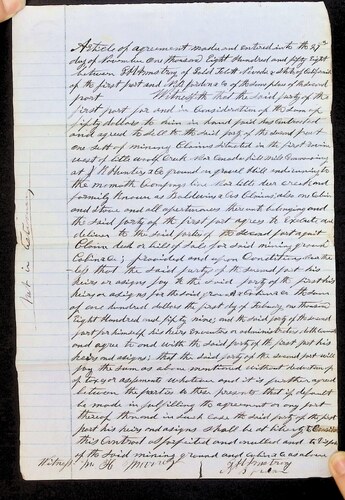 Article of agreement made and entered into the 27th
day of November One Thousand Eight Hundred and fifty Eight
between of Nevada State of California
of the first part and of the Same place of the second
part Witnesseth that the said party of the
first part for and in Consideration of the sum of
fifty dollars to him in hand paid has Contracted
and agreed to sell to the said party of the second part
one sett of mining Claims situated in the first ravine
west of little wood Creek Commencing
at J R Hunter & Co ground in gravel Hill and running to
the Companys line deer Creek and
formily Known as Baldwins & Cos Claims also one Cabin
and Stone and all apertinances therunto belonging and
the said party of the first part agrees to Execute and
deliver to the said party of the Second part a quit
Claim deed or bill of Sale for said mining ground
Cabin &c; provided and upon Condition
that the said party of the second part his
heirs or asigns pay to the said party of the first his
heirs or asigns for the said ground & Cabin &c the sum
of one hundred dollars the first day of one thousand
Eight Hundred and fifty nine; and the said party of the second
part for himself his heirs Executors or administrators doth covenant
and agree to and with the said party of the first part his
heirs and asigns; that the said party of the second part will
pay the sum as above mentioned without deduction
of tax or assesments whatever and it is further agreed
between the parties to these presents that if default
be made in fulfilling the agreement or any part
thereof then and in such case the said party of the first
part his heirs and asigns Shall be at liberty to Consider
this Contract as forfeited and nulled and to dispose
of the said mining ground and cabin &c as above
Witness